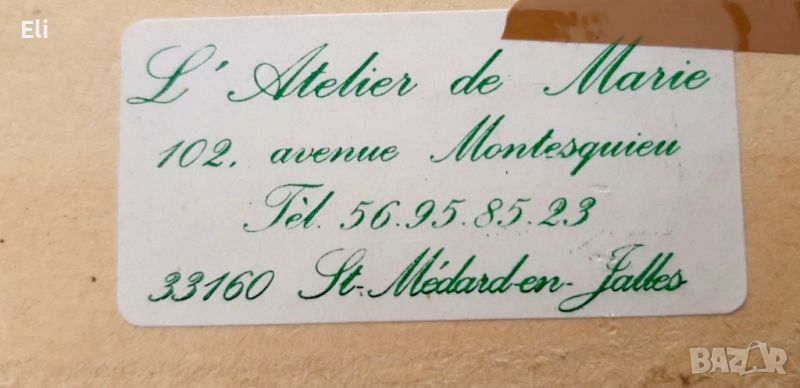 Eli
L'Atelier de Marie
102, avenue Montesquieu
Tèl. 56.95.85.23
33160 St-Médard-en-Jalles
BAZAR